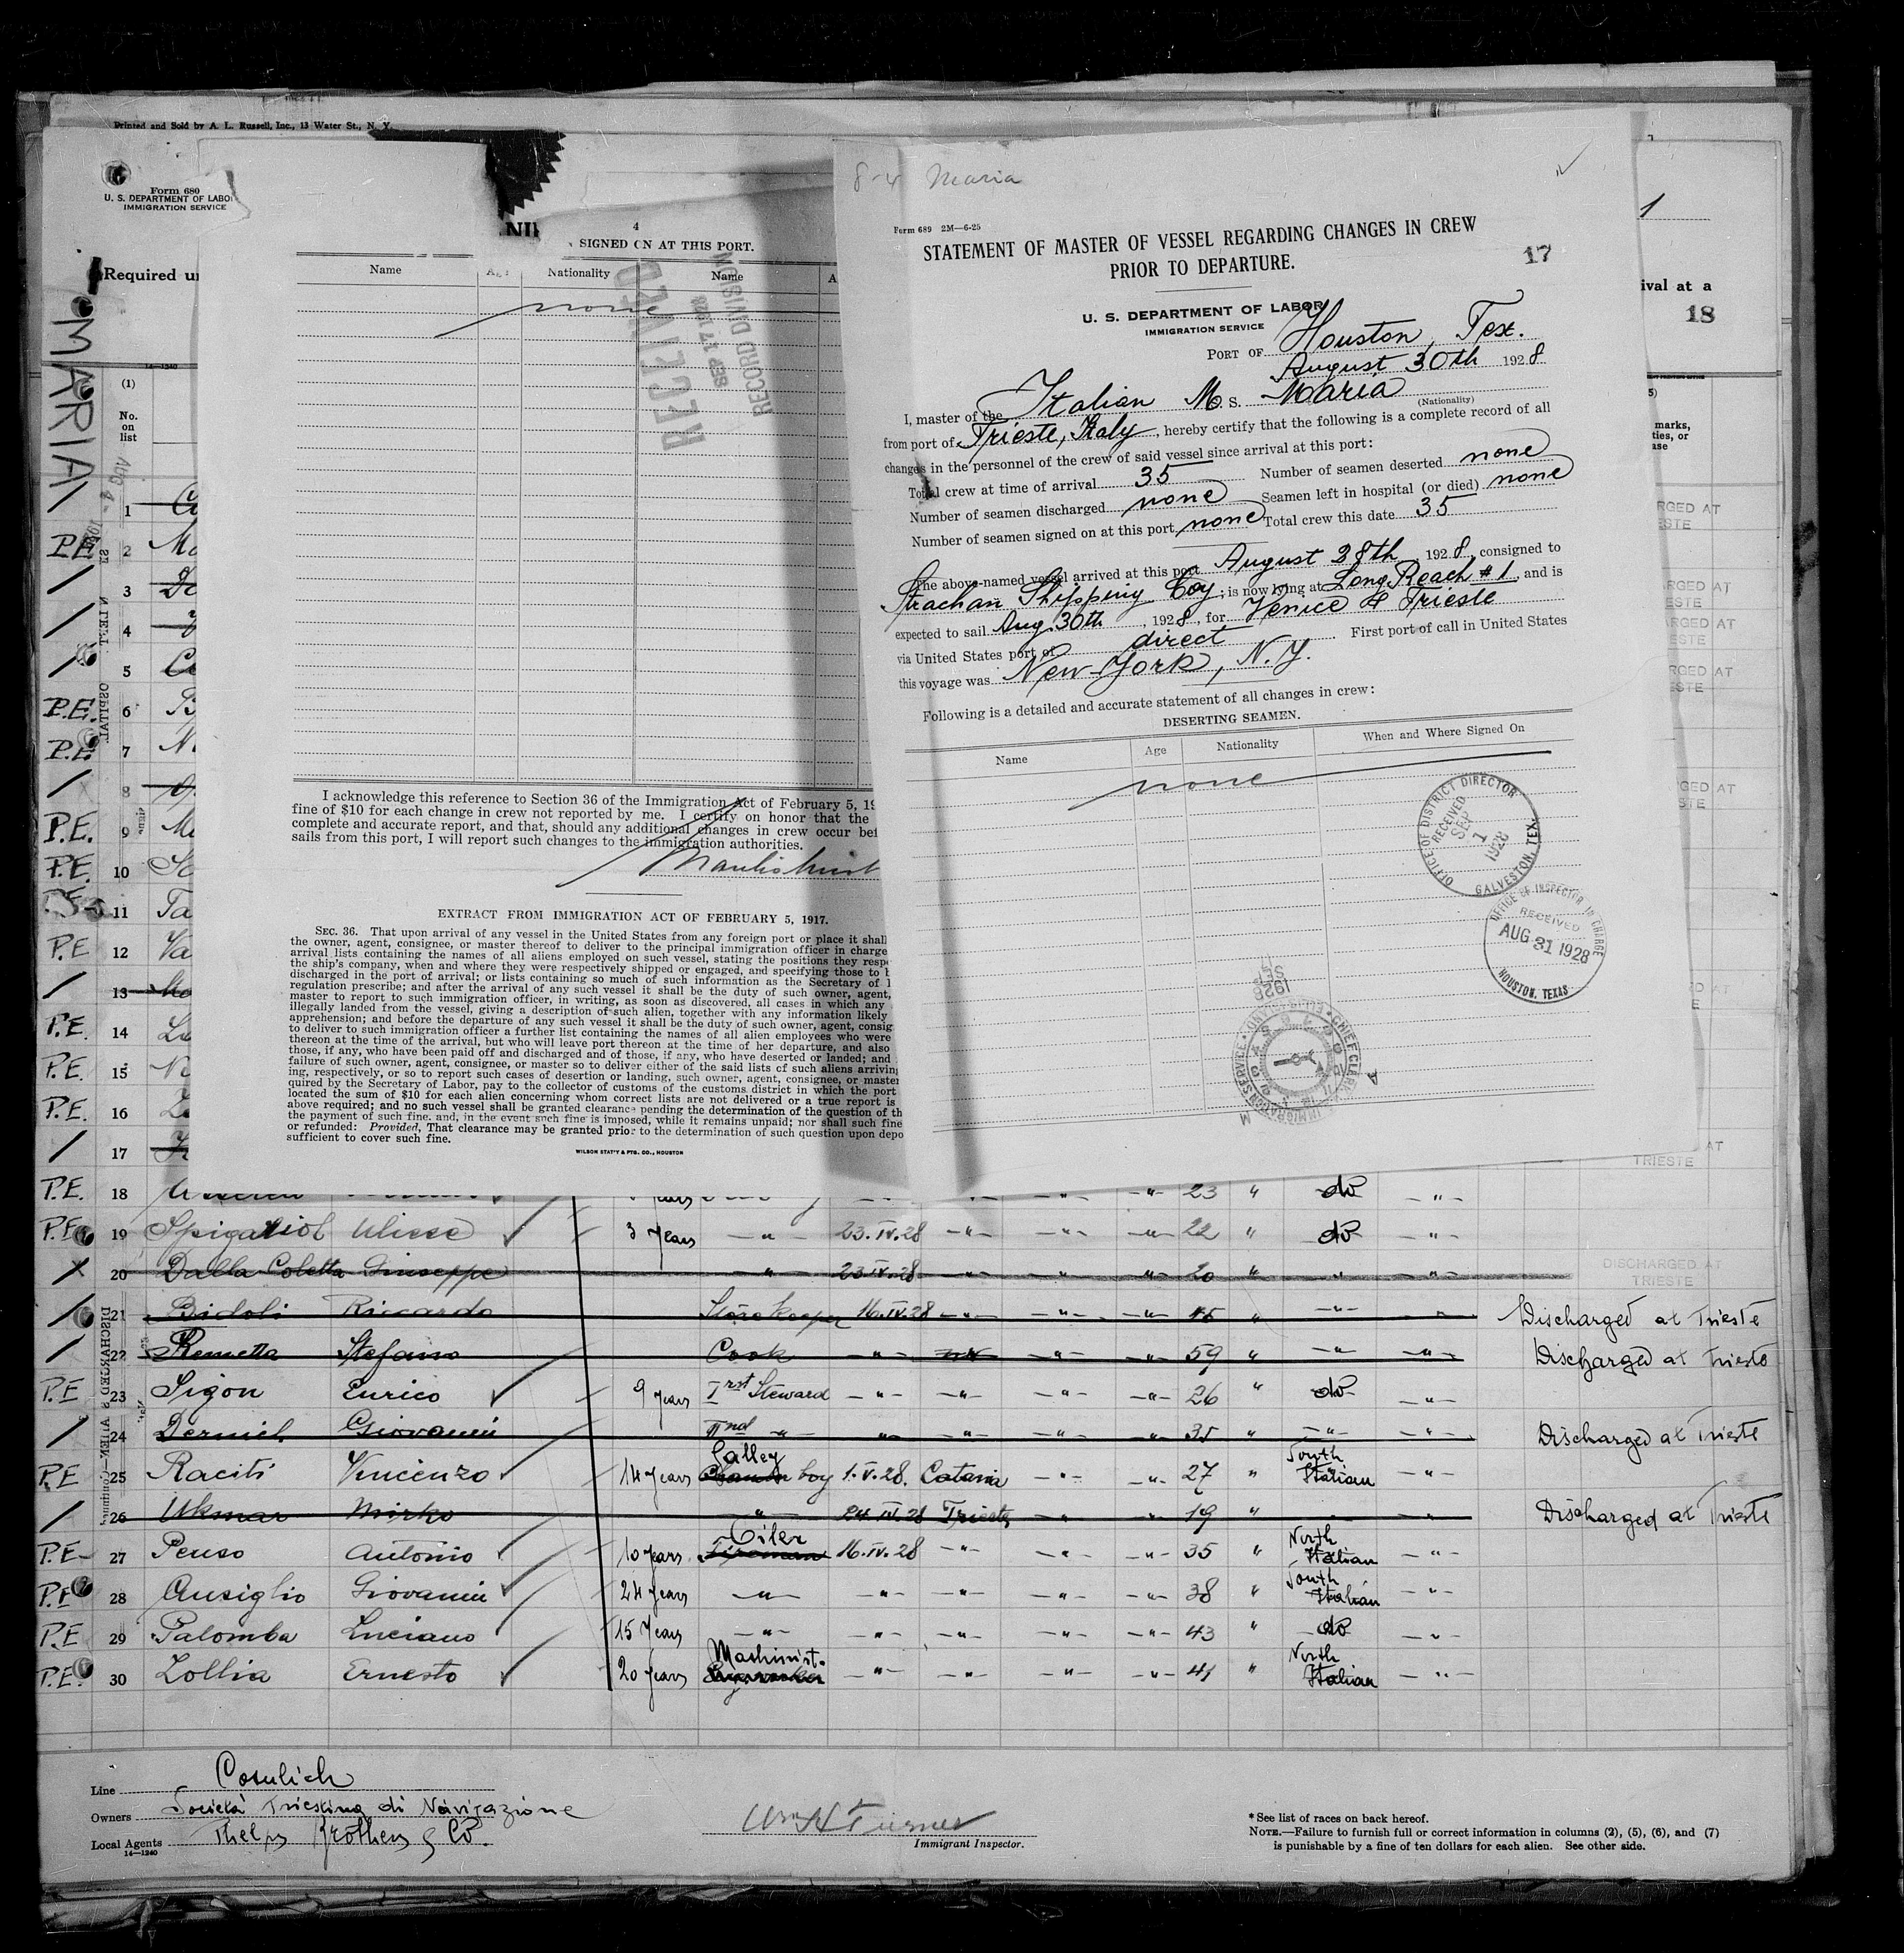 Printed and Sold by A. L. Russell, Inc., 13 Water St., N. Y.
Form 680
U. S. DEPARTMENT OF LABO
IMMIGRATION SERVICE
Required u
MARIA
(1)
No.
on
list
4
SIGNED ON AT THIS PORT.
Name Age Nationality Name A
none
RECEIVED
SEP 17 1928
RECORD DIVISION
I acknowledge this reference to Section 36 of the Immigration Act of February 5, 19
fine of $10 for each change in crew not reported by me. I certify on honor that the
complete and accurate report, and that, should any additional changes in crew occur bef
sails from this port, I will report such changes to the immigration authorities.
EXTRACT FROM IMMIGRATION ACT OF FEBRUARY 5, 1917.
SEC. 36. That upon arrival of any vessel in the United States from any foreign port or place it shall
the owner, agent, consignee, or master thereof to deliver to the principal immigration officer in charge
arrival lists containing the names of all aliens employed on such vessel, stating the positions they resp
the ship's company, when and where they were respectively shipped or engaged, and specifying those to b
discharged in the port of arrival; or lists containing so much of such information as the Secretary of l
regulation prescribe; and after the arrival of any such vessel it shall be the duty of such owner, agent,
master to report to such immigration officer, in writing, as soon as discovered, all cases in which any
illegally landed from the vessel, giving a description of such alien, together with any information likely
apprehension; and before the departure of any such vessel it shall be the duty of such owner, agent, consig
to deliver to such immigration officer a further list containing the names of all alien employees who were
thereon at the time of the arrival, but who will leave port thereon at the time of her departure, and also
those, if any, who have been paid off and discharged and of those, if any, who have deserted or landed; and
failure of such owner, agent, consignee, or master so to deliver either of the said lists of such aliens arrivin
ing, respectively, or so to report such cases of desertion or landing, such owner, agent, consignee, or master
quired by the Secretary of Labor, pay to the collector of customs of the customs district in which the port
located the sum of $10 for each alien concerning whom correct lists are not delivered or a true report is
above required; and no such vessel shall be granted clearance pending the determination of the question of th
the payment of such fine, and, in the event such fine is imposed, while it remains unpaid; nor shall such fine
or refunded: Provided, That clearance may be granted prior to the determination of such question upon depo
sufficient to cover such fine.
WILSON STAT'Y & PTG. CO., HOUSTON
8-4 Maria
Form 689 2M—6-25
STATEMENT OF MASTER OF VESSEL REGARDING CHANGES IN CREW
PRIOR TO DEPARTURE.
17
U. S. DEPARTMENT OF LABOR
IMMIGRATION SERVICE
PORT OF Houston, Tex.
August 30th 1928
I, master of the Italian M. S. Maria
(Nationality)
from port of Trieste, Italy, hereby certify that the following is a complete record of all
changes in the personnel of the crew of said vessel since arrival at this port:
Total crew at time of arrival 35 Number of seamen deserted none
Number of seamen discharged none Seamen left in hospital (or died) none
Number of seamen signed on at this port none Total crew this date 35
The above-named vessel arrived at this port August 28th, 1928, consigned to
Strachan Shipping Coy; is now lying at Long Reach #1, and is
expected to sail Aug. 30th, 1928, for Venice & Trieste
via United States port of direct. First port of call in United States
this voyage was New York, N.Y.
Following is a detailed and accurate statement of all changes in crew:
DESERTING SEAMEN.
Name Age Nationality When and Where Signed On
none
OFFICE OF DISTRICT DIRECTOR
RECEIVED
SEP 1 1928
GALVESTON, TEX.
OFFICE OF INSPECTOR IN CHARGE
RECEIVED
AUG 31 1928
HOUSTON, TEXAS
1
ival at a
18
marks,
ties, or
ase
1
P.E. 2 Ma
3
4
5
P.E. 6
P.E. 7
8
P.E. 9
P.E. 10
P.E. 11 Ta
P.E. 12 Va
13
P.E. 14
P.E. 15
P.E. 16
17 TRIESTE
P.E. 18 23 " do
P.E. 19 Ulisse 3 Years —"— 23.IV.28 —"— —"— —"— 22 " do —"—
20 Dalla Coletta Giuseppe " 23.IV.28 —"— —"— —"— 20 " " " DISCHARGED AT TRIESTE
21 Bidoli Riccardo Storekeeper 16.IV.28 —"— —"— —"— 45 " —"— " Discharged at Trieste
22 Remetta Stefano Cook —"— —"— —"— 59 " —"— —"— Discharged at Trieste
P.E. 23 Sigon Enrico 9 Years Irst Steward —"— —"— —"— —"— 26 " do —"—
24 Dernich Giovanni IInd —"— —"— —"— —"— —"— 35 " —"— —"— Discharged at Trieste
P.E. 25 Raciti Vincenzo 14 Years Galley boy 1.V.28. Catania —"— —"— 27 " South Italian —"—
26 Ukmar Mirko —"— 24.IV.28 Trieste —"— 19 " —"— Discharged at Trieste
P.E. 27 Penso Antonio 10 years Oiler Fireman 16.IV.28 —"— —"— —"— 35 " North Italian —"—
P.E. 28 Ausiglio Giovanni 24 Years —"— —"— —"— —"— —"— 38 " South Italian —"—
P.E. 29 Palomba Luciano 15 Years —"— —"— —"— —"— —"— 43 " do —"—
P.E. 30 Zollia Ernesto 20 years Machinist —"— —"— —"— —"— 41 " North Italian —"—
Line Cosulich
Owners Società Triestina di Navigazione
Local Agents Phelps Brothers & Co.
14—1240
Wm H Turner
Immigrant Inspector.
* See list of races on back hereof.
NOTE.—Failure to furnish full or correct information in columns (2), (5), (6), and (7)
is punishable by a fine of ten dollars for each alien. See other side.